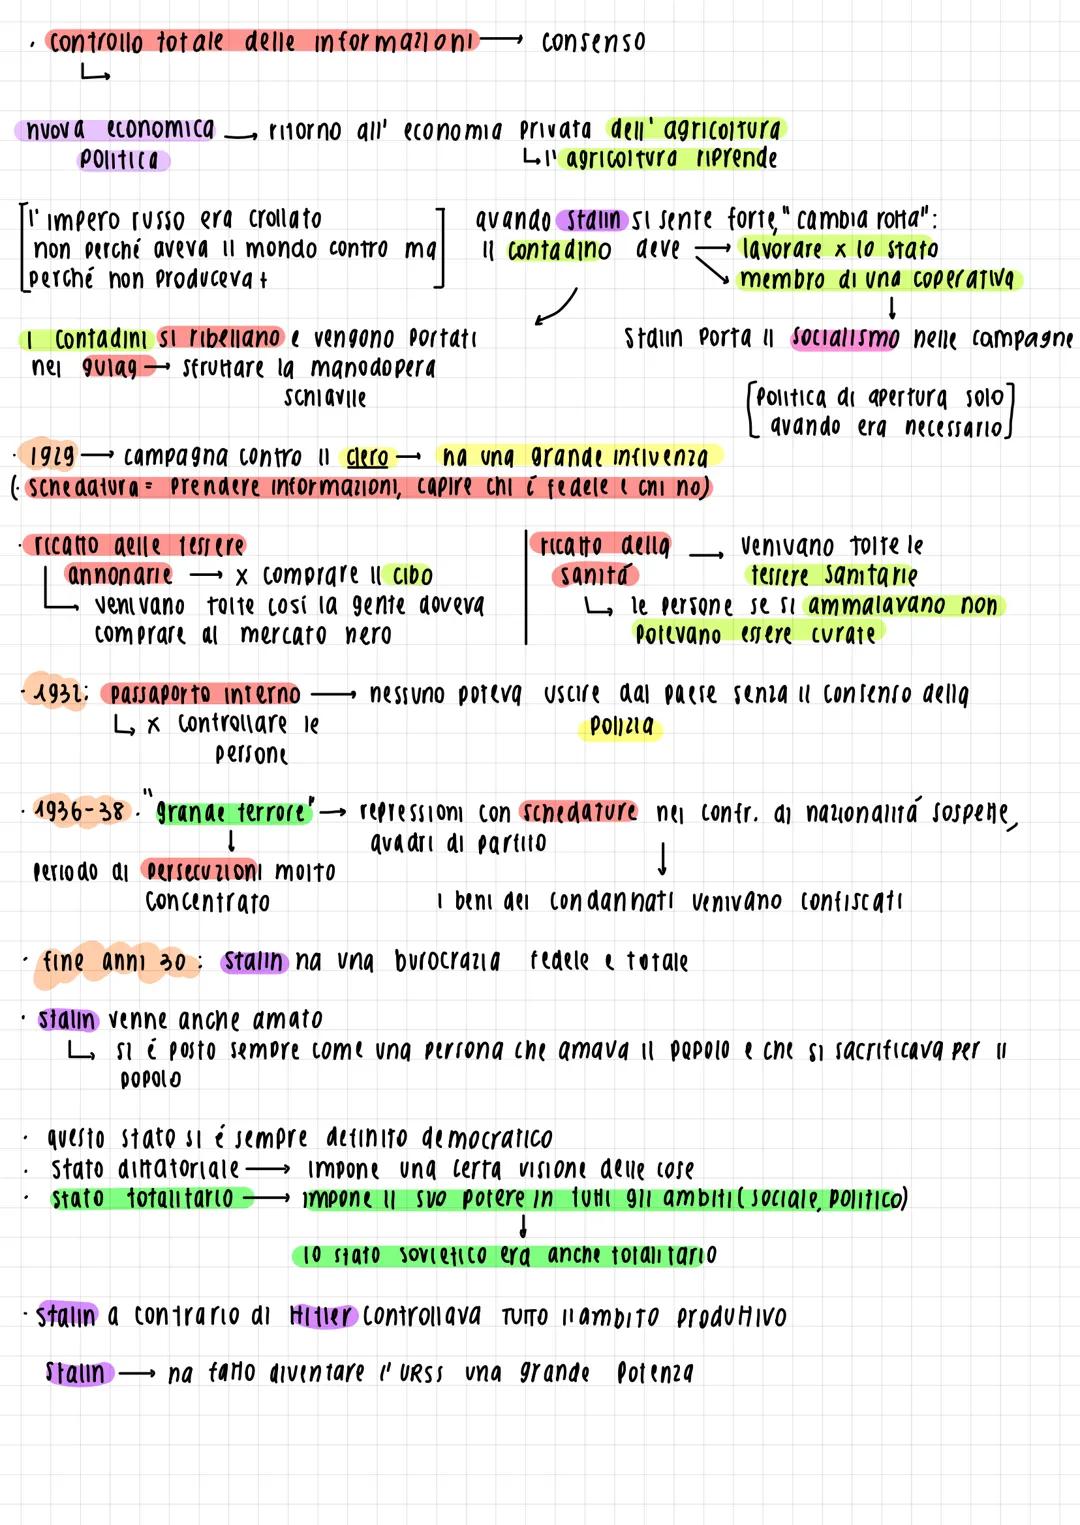 · controllo totale delle informazioni → consenso
↳
nuova economica → ritorno all' economia privata dell' agricoltura
politica
↳ l' agricoltura riprende
[l' impero russo era crollato
non perché aveva il mondo contro ma
perché non produceva +]
quando Stalin si sente forte, "cambia rotta":
il contadino deve → lavorare x lo stato
→ membro di una coperativa
↓
Stalin porta il socialismo nelle campagne
i contadini si ribellano e vengono portati
nei gulag → sfruttare la manodopera
schiavile
[politica di apertura solo
quando era necessario]
· 1929 → campagna contro il clero → ha una grande influenza
(· schedatura = prendere informazioni, capire chi é fedele e chi no)
· ricatto delle tessere
annonarie → x comprare il cibo
↳ venivano tolte cosí la gente doveva
comprare al mercato nero
ricatto della → venivano tolte le
sanitá tessere sanitarie
↳ le persone se si ammalavano non
potevano essere curate
· 1932: passaporto interno → nessuno poteva uscire dal paese senza il consenso della
polizia
↳ x controllare le
persone
· 1936-38: "grande terrore" → repressioni con schedature nei confr. di nazionalitá sospette,
quadri di partito
↓
periodo di persecuzioni molto
concentrato
↓
i beni dei condannati venivano confiscati
· fine anni 30: Stalin ha una burocrazia fedele e totale
· Stalin venne anche amato
↳ si é posto sempre come una persona che amava il popolo e che si sacrificava per il
popolo
· questo stato si é sempre definito democratico
· stato dittatoriale → impone una certa visione delle cose
· stato totalitario → impone il suo potere in tutti gli ambiti (sociale, politico)
↓
lo stato sovietico era anche totalitario
· Stalin a contrario di Hitler controllava TUTTO il ambito produttivo
Stalin → ha fatto diventare l' URSS una grande potenza